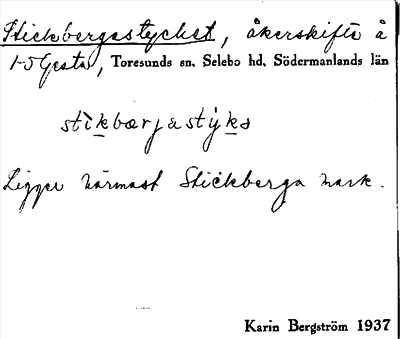 Stickbergastycket, åkerskifte å
1-5 Gesta, Toresunds sn, Selebo hd, Södermanlands län
Ligger närmast Stickberga mark.
Karin Bergström 1937